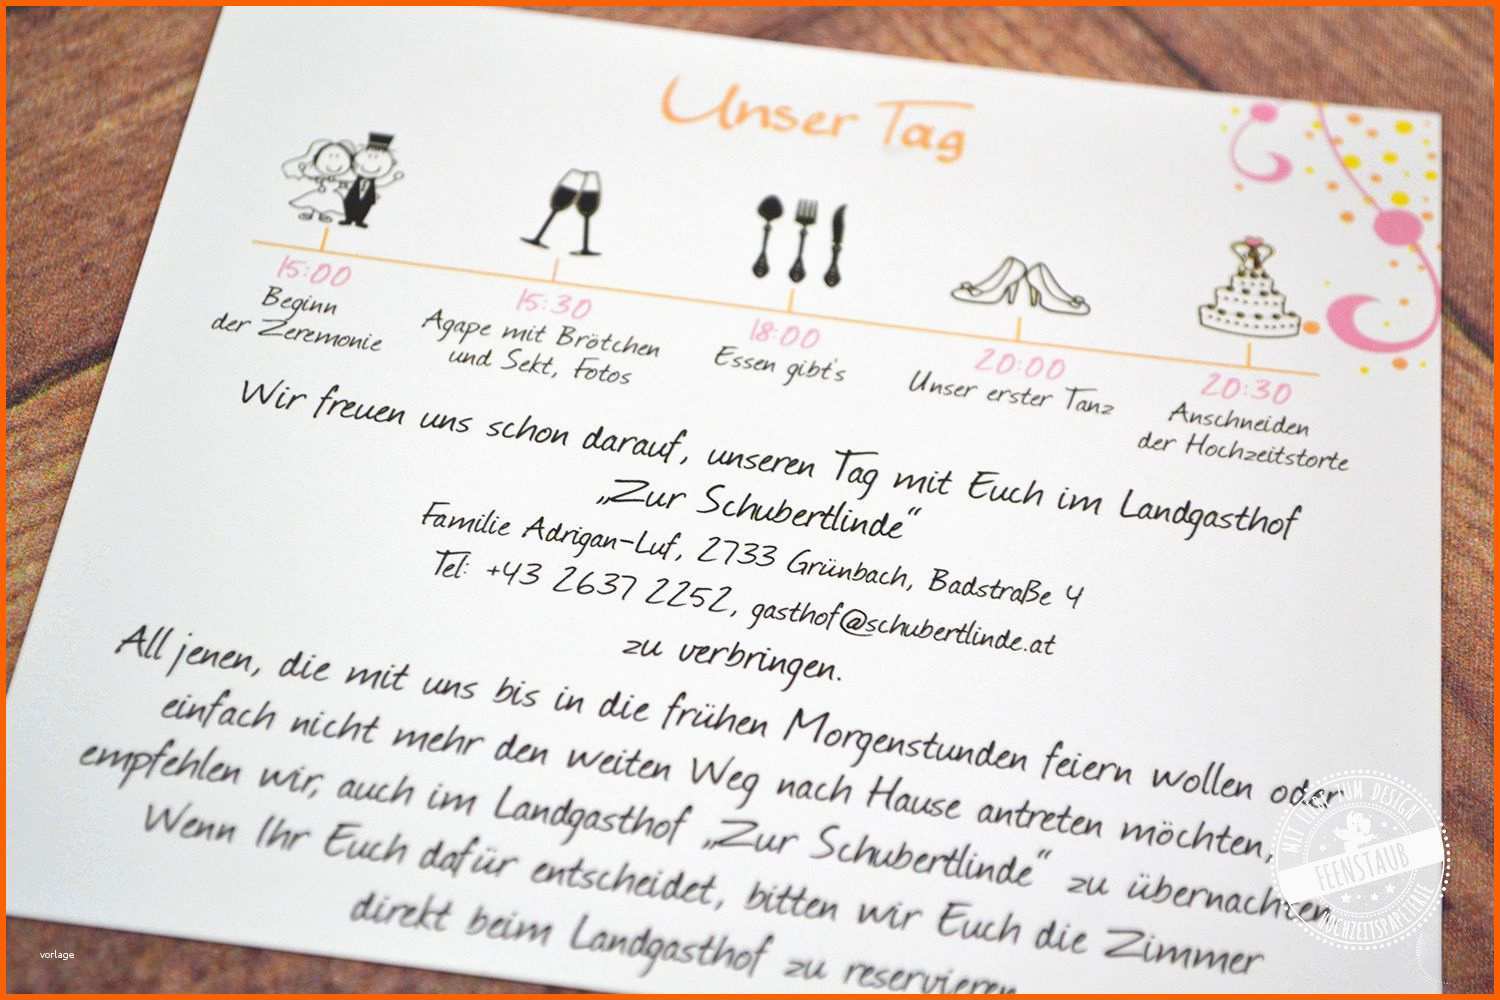 Unser Tag
15:00
Beginn
der Zeremonie
15:30
Agape mit Brötchen
und Sekt, Fotos
18:00
Essen gibt's
20:00
Unser erster Tanz
20:30
Anschneiden
der Hochzeitstorte
Wir freuen uns schon darauf, unseren Tag mit Euch im Landgasthof
„Zur Schubertlinde“
Familie Adrigan-Luf, 2733 Grünbach, Badstraße 4
Tel: +43 2637 2252, gasthof@schubertlinde.at
zu verbringen.
All jenen, die mit uns bis in die frühen Morgenstunden feiern wollen oder
einfach nicht mehr den weiten Weg nach Hause antreten möchten,
empfehlen wir, auch im Landgasthof „Zur Schubertlinde“ zu übernachten.
Wenn Ihr Euch dafür entscheidet, bitten wir Euch die Zimmer
direkt beim Landgasthof zu reservieren
DESIGN
FEENSTAUB
HOCHZEITSPAPETERIE
vorlage